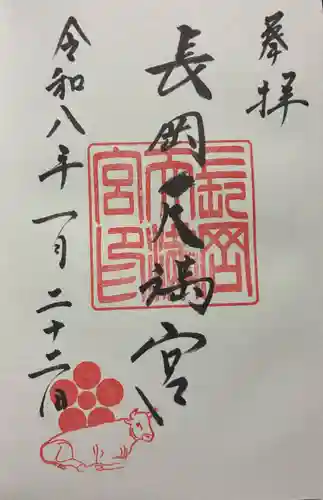 奉拝
長岡天満宮
令和八年一月二十二日
長岡
天満
宮印